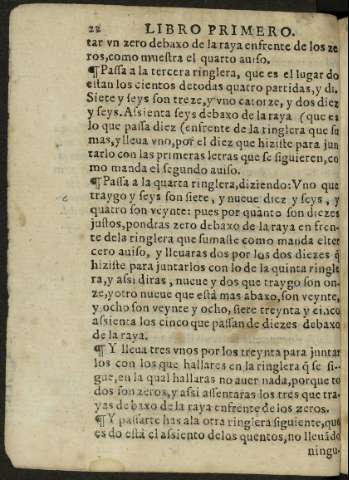 22 LIBRO PRIMERO.
tar vn zero debaxo de la raya enfrente de los ze
ros, como muestra el quarto auiso.
¶ Passa a la tercera ringlera, que es el lugar do
estan los cientos de todas quatro partidas, y di.
Siete y seys son treze, y vno catorze, y dos diez
y seys. Assienta seys debaxo de la raya (que es
lo que passa diez (enfrente de la ringlera que su
mas, y lleua vno, por el diez que hiziste para jun
tarlo con las primeras letras que se siguieren, co
mo manda el segundo auiso.
¶ Passa a la quarta ringlera, diziendo: Vno que
traygo y seys son siete, y nueue diez y seys, y
quatro son veynte: pues por quanto son diezes
justos, pondras zero debaxo de la raya en fren
te dela ringlera que sumaste como manda el ter
cero auiso, y lleuaras dos por los dos diezes q̃
hiziste para juntarlos con lo de la quinta ringle
ra, y assi diras, nueue y dos que traygo son on-
ze, y otro nueue que està mas abaxo, son veynte,
y ocho son veynte y ocho, siete treynta y cinco
assienta los cinco que passan de diezes debaxo
de la raya.
¶ Y lleua tres vnos por los treynta para juntar
los con los que hallares en la ringlera q̃ se si-
gue, en la qual hallaras no auer nada, porque to
dos son zeros, y assi assentaras los tres que tra-
yas debaxo de la raya enfrente de los zeros.
¶ Y passarte has a la otra ringlera siguiente, que
es do està el assiento de los quentos, no lleuãdo
ningu-